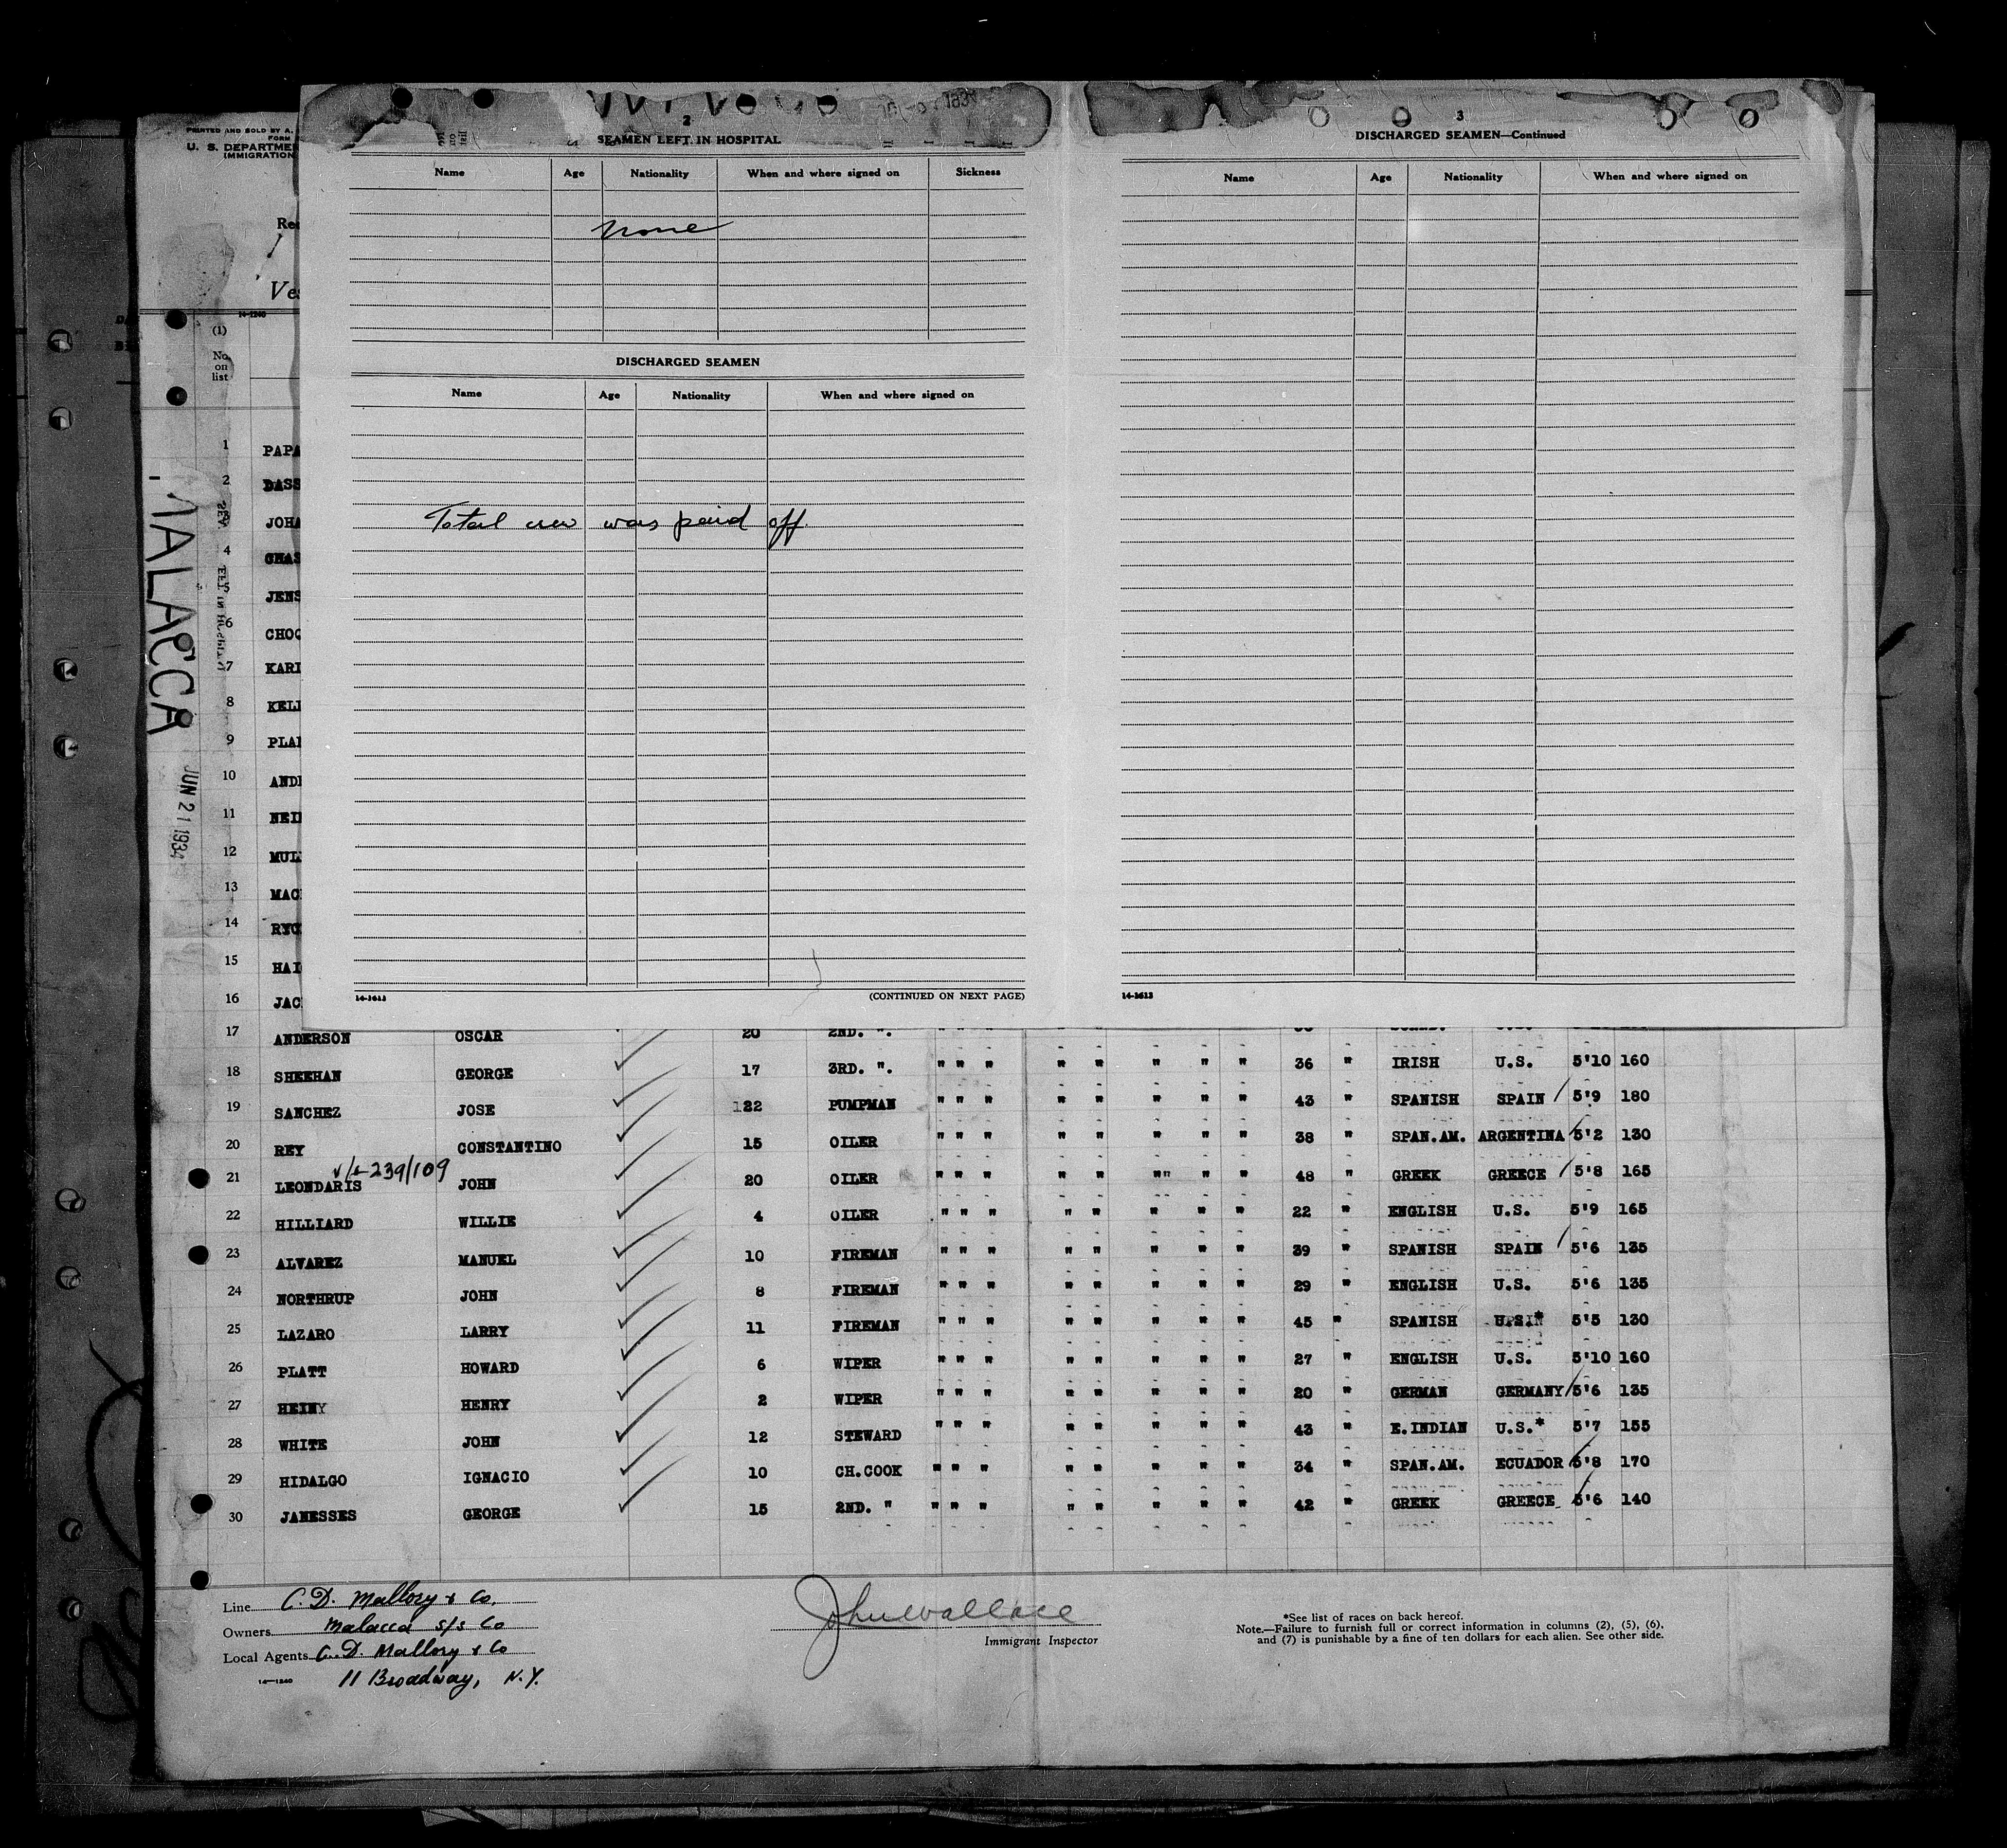 PRINTED AND SOLD BY A.
FORM
U. S. DEPARTME
IMMIGRATION
Ves
14-1240
(1)
No.
on
list
MALACCA
JUN 21 1934
2
SEAMEN LEFT IN HOSPITAL
Name Age Nationality When and where signed on Sickness
None
DISCHARGED SEAMEN
Name Age Nationality When and where signed on
Total crew was paid off
14-1613 (CONTINUED ON NEXT PAGE)
3
DISCHARGED SEAMEN—Continued
Name Age Nationality When and where signed on
14-1613
1 PAPA
2 DASS
JOHA
4 CHAS
5 JENS
6 CHOC
7 KARL
8 KELL
9 PLAN
10 AND
11 NEI
12 MUL
13 MAC
14 RYC
15 HAI
16 JAC
17 ANDERSON OSCAR 20 2ND. ".
18 SHEEHAN GEORGE 17 3RD. ". " " " " " " " " 36 " IRISH U.S. 5'10 160
19 SANCHEZ JOSE 22 PUMPMAN " " " " " " " " 43 " SPANISH SPAIN 5'9 180
20 REY CONSTANTINO 15 OILER " " " " " " " " 38 " SPAN.AM. ARGENTINA 5'2 130
239/109
21 LEONDARIS JOHN 20 OILER " " " " " " " " 48 " GREEK GREECE 5'8 165
22 HILLIARD WILLIE 4 OILER " " " " " " " " 22 " ENGLISH U.S. 5'9 165
23 ALVAREZ MANUEL 10 FIREMAN " " " " " " " " 39 " SPANISH SPAIN 5'6 135
24 NORTHRUP JOHN 8 FIREMAN " " " " " " " " 29 " ENGLISH U.S. 5'6 135
25 LAZARO LARRY 11 FIREMAN " " " " " " " " 45 " SPANISH 5'5 130
26 PLATT HOWARD 6 WIPER " " " " " " " " 27 " ENGLISH U.S. 5'10 160
27 HEINY HENRY 2 WIPER " " " " " " " " 20 " GERMAN GERMANY 5'6 135
28 WHITE JOHN 12 STEWARD " " " " " " " " 43 " E.INDIAN U.S.* 5'7 155
29 HIDALGO IGNACIO 10 CH.COOK " " " " " " " " 34 " SPAN.AM. ECUADOR 5'8 170
30 JANESSES GEORGE 15 2ND. " " " " " " " " " 42 " GREEK GREECE 5'6 140
Line C. D. Mallory & Co.
Owners Malacca S/S Co
Local Agents C. D. Mallory & Co
14-1240 11 Broadway, N.Y.
John Wallace
Immigrant Inspector
*See list of races on back hereof.
Note.—Failure to furnish full or correct information in columns (2), (5), (6),
and (7) is punishable by a fine of ten dollars for each alien. See other side.